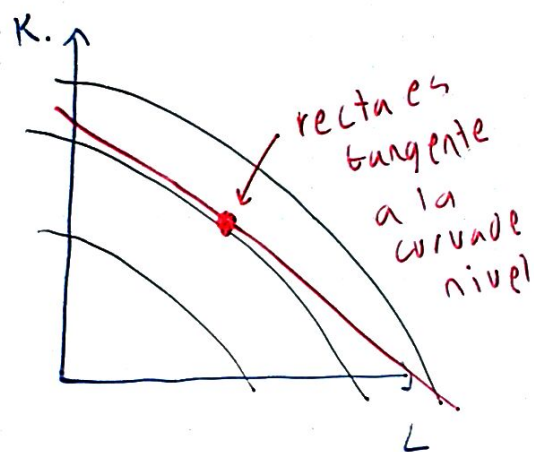 K.
recta es
tangente
a la
curva de
nivel
L